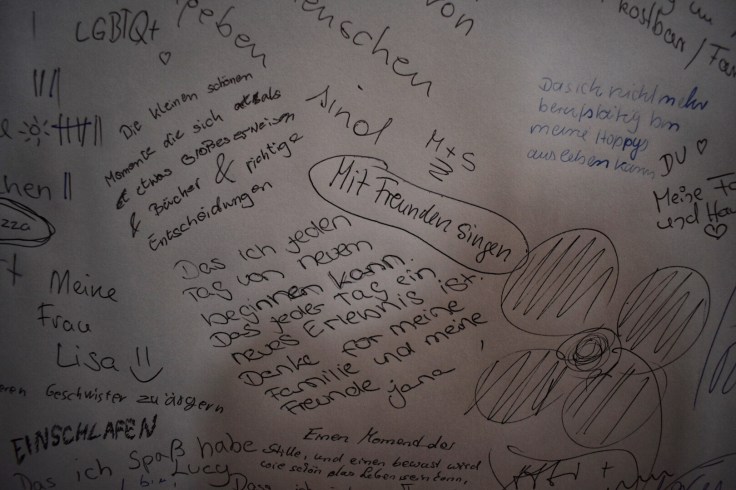 LGBTQ+
leben
Menschen
sind
von
kostbar / Fam
Die kleinen schönen
Momente die sich als
etwas Großes erweisen
& Bücher & richtige
Entscheidungen
M+S
Das ich nicht mehr
berufstätig bin
meine Hoppys
ausleben kann
DU
Meine Fa
und Hau
Mit Freunden Singen
chen
zza
Das ich jeden
Tag von neuen
beginnen kann.
Das jeder Tag ein
neues Erlebnis ist.
Danke für meine
Familie und meine
Freunde Jana
Meine
Frau
Lisa
eren Geschwister zu ärgern
EINSCHLAFEN
Das ich Spaß habe
bin Lucy
Einen Moment der
Stille, und einen bewusst wird
wie schön das Leben sein kann,